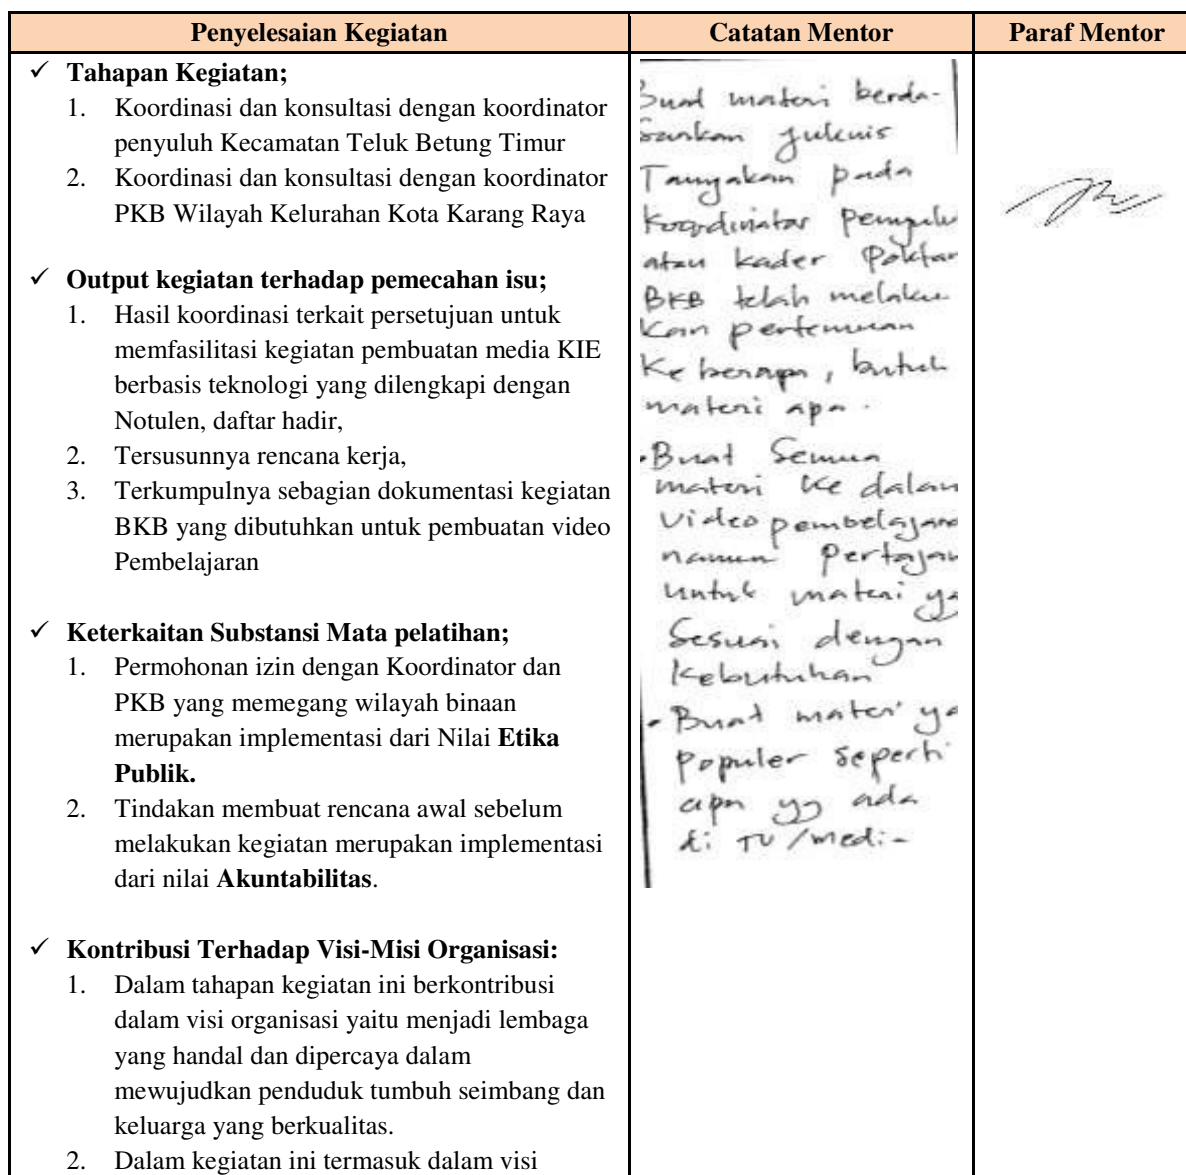 Penyelesaian Kegiatan
Catatan Mentor
Paraf Mentor
✓ Tahapan Kegiatan;
1. Koordinasi dan konsultasi dengan koordinator
penyuluh Kecamatan Teluk Betung Timur
2. Koordinasi dan konsultasi dengan koordinator
PKB Wilayah Kelurahan Kota Karang Raya
✓ Output kegiatan terhadap pemecahan isu;
1. Hasil koordinasi terkait persetujuan untuk
memfasilitasi kegiatan pembuatan media KIE
berbasis teknologi yang dilengkapi dengan
Notulen, daftar hadir,
2. Tersusunnya rencana kerja,
3. Terkumpulnya sebagian dokumentasi kegiatan
BKB yang dibutuhkan untuk pembuatan video
Pembelajaran
✓ Keterkaitan Substansi Mata pelatihan;
1. Permohonan izin dengan Koordinator dan
PKB yang memegang wilayah binaan
merupakan implementasi dari Nilai Etika
Publik.
2. Tindakan membuat rencana awal sebelum
melakukan kegiatan merupakan implementasi
dari nilai Akuntabilitas.
✓ Kontribusi Terhadap Visi-Misi Organisasi:
1. Dalam tahapan kegiatan ini berkontribusi
dalam visi organisasi yaitu menjadi lembaga
yang handal dan dipercaya dalam
mewujudkan penduduk tumbuh seimbang dan
keluarga yang berkualitas.
2. Dalam kegiatan ini termasuk dalam visi
Buat materi berda-
sarkan juknis
Tanyakan pada
Koordinator penyulu
atau kader Poktan
BKB telah melaku
kan pertemuan
Ke berapa, butuh
materi apa.
• Buat Semua
materi ke dalam
Video pembelajara
namun Pertajam
untuk materi yg
Sesuai dengan
Kebutuhan
• Buat materi yg
Populer seperti
apa yg ada
di TV/medi-